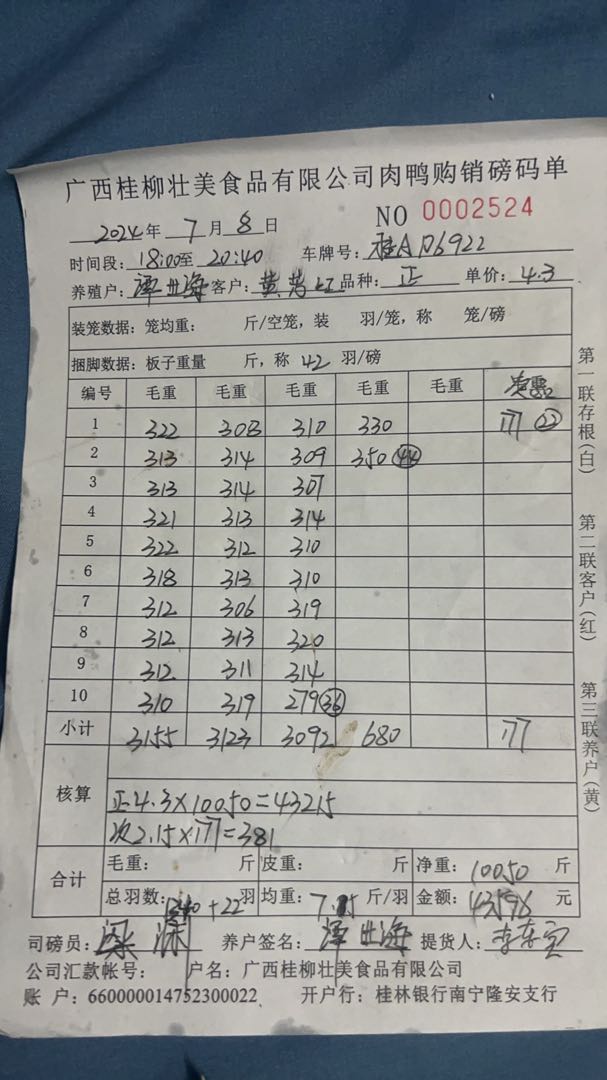 广西桂柳壮美食品有限公司肉鸭购销磅码单
NO 0002524
2024年 7 月 8 日
时间段: 18:00至 20:40 车牌号: 桂A D6922
养殖户: 潭世海 客户: 黄 品种: 正 单价: 4.3
装笼数据: 笼均重: 斤/空笼, 装 羽/笼, 称 笼/磅
捆脚数据: 板子重量 斤, 称 42 羽/磅
编号 毛重 毛重 毛重 毛重 毛重
1 322 303 310 330 177 (22)
2 313 314 309 350 (44)
3 313 314 307
4 321 313 314
5 322 312 310
6 318 313 310
7 312 306 319
8 312 313 320
9 312 311 314
10 310 319 279 (36)
小计 3155 3123 3092 680 177
核算
正4.3×10050=43215
次2.15×177=381
合计
毛重: 斤 皮重: 斤 净重: 10050 斤
总羽数: +22 羽 均重: 斤/羽 金额: 43596 元
司磅员: 养户签名: 潭世海 提货人:
公司汇款帐号: 户名: 广西桂柳壮美食品有限公司
账 户: 660000014752300022 开户行: 桂林银行南宁隆安支行
第一联存根(白)
第二联客户(红)
第三联养户(黄)